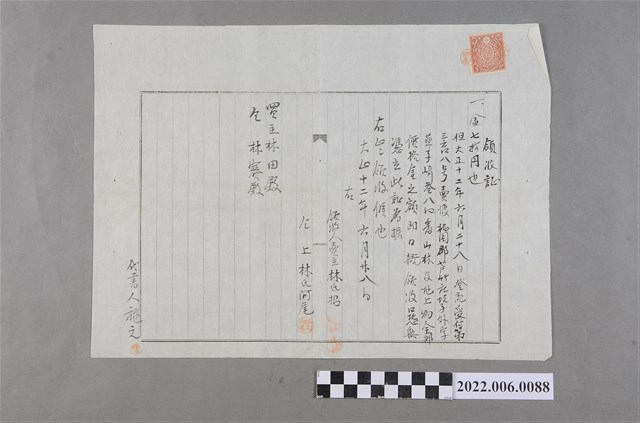 領收証
一金七拾円也
但大正十二年六月二十八日登記受付第
三六八号賣渡桃園郡芦竹庄坑子外字
草子崎叁八四番山林及地上物全部
價格金之額即日概領收口恐無
憑立此証為據
右正ニ領收候也
大正十二年六月廿八日
右
領收人賣主林氏招
仝上林氏阿尾
買主林田殿
仝林寮殿
代書人
2022.006.0088